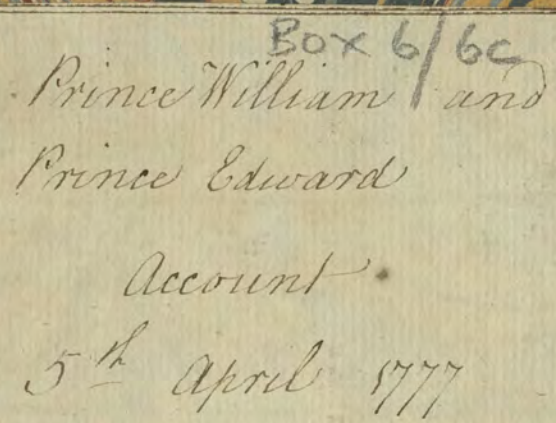 Box 6/6c
Prince William and
Prince Edward
Account
5th April 1777